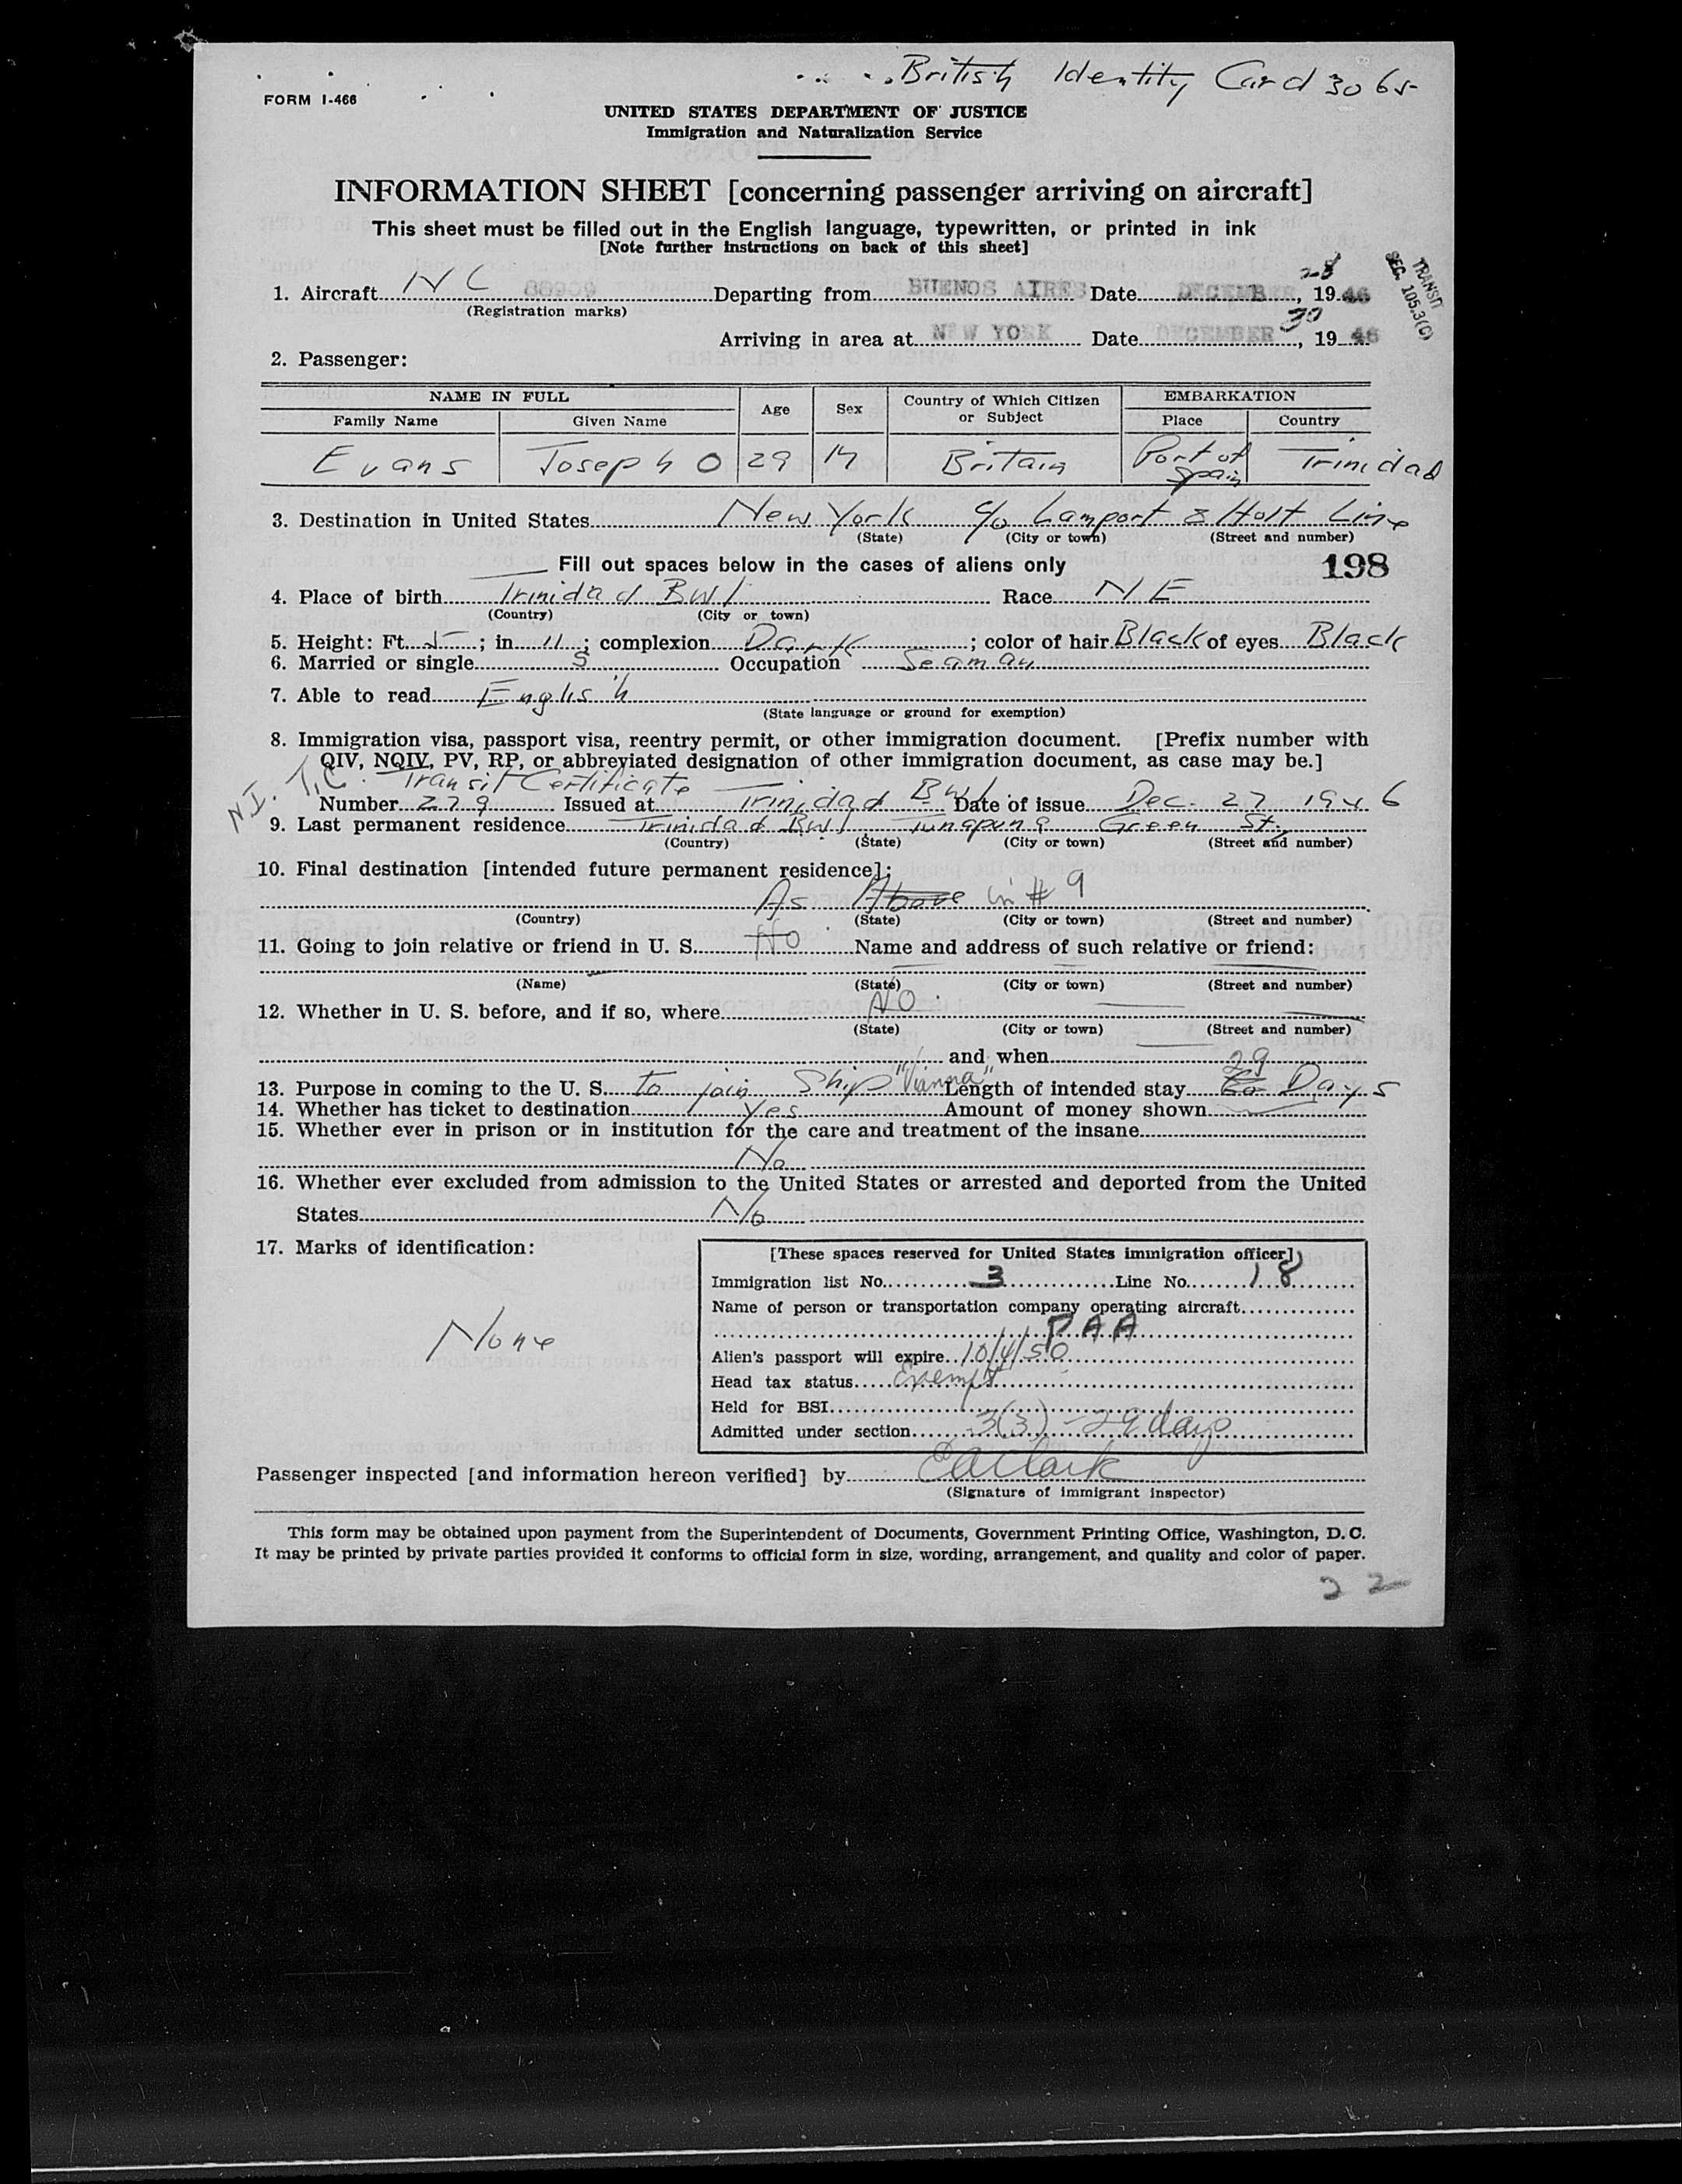 British Identity Card 3065
FORM I-466
UNITED STATES DEPARTMENT OF JUSTICE
Immigration and Naturalization Service
INFORMATION SHEET [concerning passenger arriving on aircraft]
This sheet must be filled out in the English language, typewritten, or printed in ink
[Note further instructions on back of this sheet]
TRANSIT
SEC. 105.3(C)
1. Aircraft NC 88909 Departing from BUENOS AIRES Date DECEMBER 28, 1946
(Registration marks)
Arriving in area at NEW YORK Date DECEMBER 30, 1946
2. Passenger:
NAME IN FULL Age Sex Country of Which Citizen or Subject EMBARKATION
Family Name Given Name Place Country
Evans Joseph O 29 M Britain Port of Spain Trinidad
3. Destination in United States New York c/o Lamport & Holt Line
(State) (City or town) (Street and number)
Fill out spaces below in the cases of aliens only 198
4. Place of birth Trinidad BWI Race NE
(Country) (City or town)
5. Height: Ft. 5; in. 11; complexion Dark; color of hair Black of eyes Black
6. Married or single S Occupation Seaman
7. Able to read English
(State language or ground for exemption)
8. Immigration visa, passport visa, reentry permit, or other immigration document. [Prefix number with
QIV, NQIV, PV, RP, or abbreviated designation of other immigration document, as case may be.]
N.I. T.C. Transit Certificate
Number 279 Issued at Trinidad BWI Date of issue Dec. 27 1946
9. Last permanent residence Trinidad BWI Tunapuna Green St.
(Country) (State) (City or town) (Street and number)
10. Final destination [intended future permanent residece]:
As Above in # 9
(Country) (State) (City or town) (Street and number)
11. Going to join relative or friend in U. S. No Name and address of such relative or friend:
(Name) (State) (City or town) (Street and number)
12. Whether in U. S. before, and if so, where NO
(State) (City or town) (Street and number)
and when
13. Purpose in coming to the U. S. to join Ship "Vianna" Length of intended stay 29 Days
14. Whether has ticket to destination Yes Amount of money shown
15. Whether ever in prison or in institution for the care and treatment of the insane
No
16. Whether ever excluded from admission to the United States or arrested and deported from the United
States No
17. Marks of identification:
None
[These spaces reserved for United States immigration officer]
Immigration list No. 3 Line No. 18
Name of person or transportation company operating aircraft
PAA
Alien's passport will expire 10/4/50
Head tax status Exempt
Held for BSI
Admitted under section 3(3) - 29 days
Passenger inspected [and information hereon verified] by EA Clark
(Signature of immigrant inspector)
This form may be obtained upon payment from the Superintendent of Documents, Government Printing Office, Washington, D.C.
It may be printed by private parties provided it conforms to official form in size, wording, arrangement, and quality and color of paper.
22